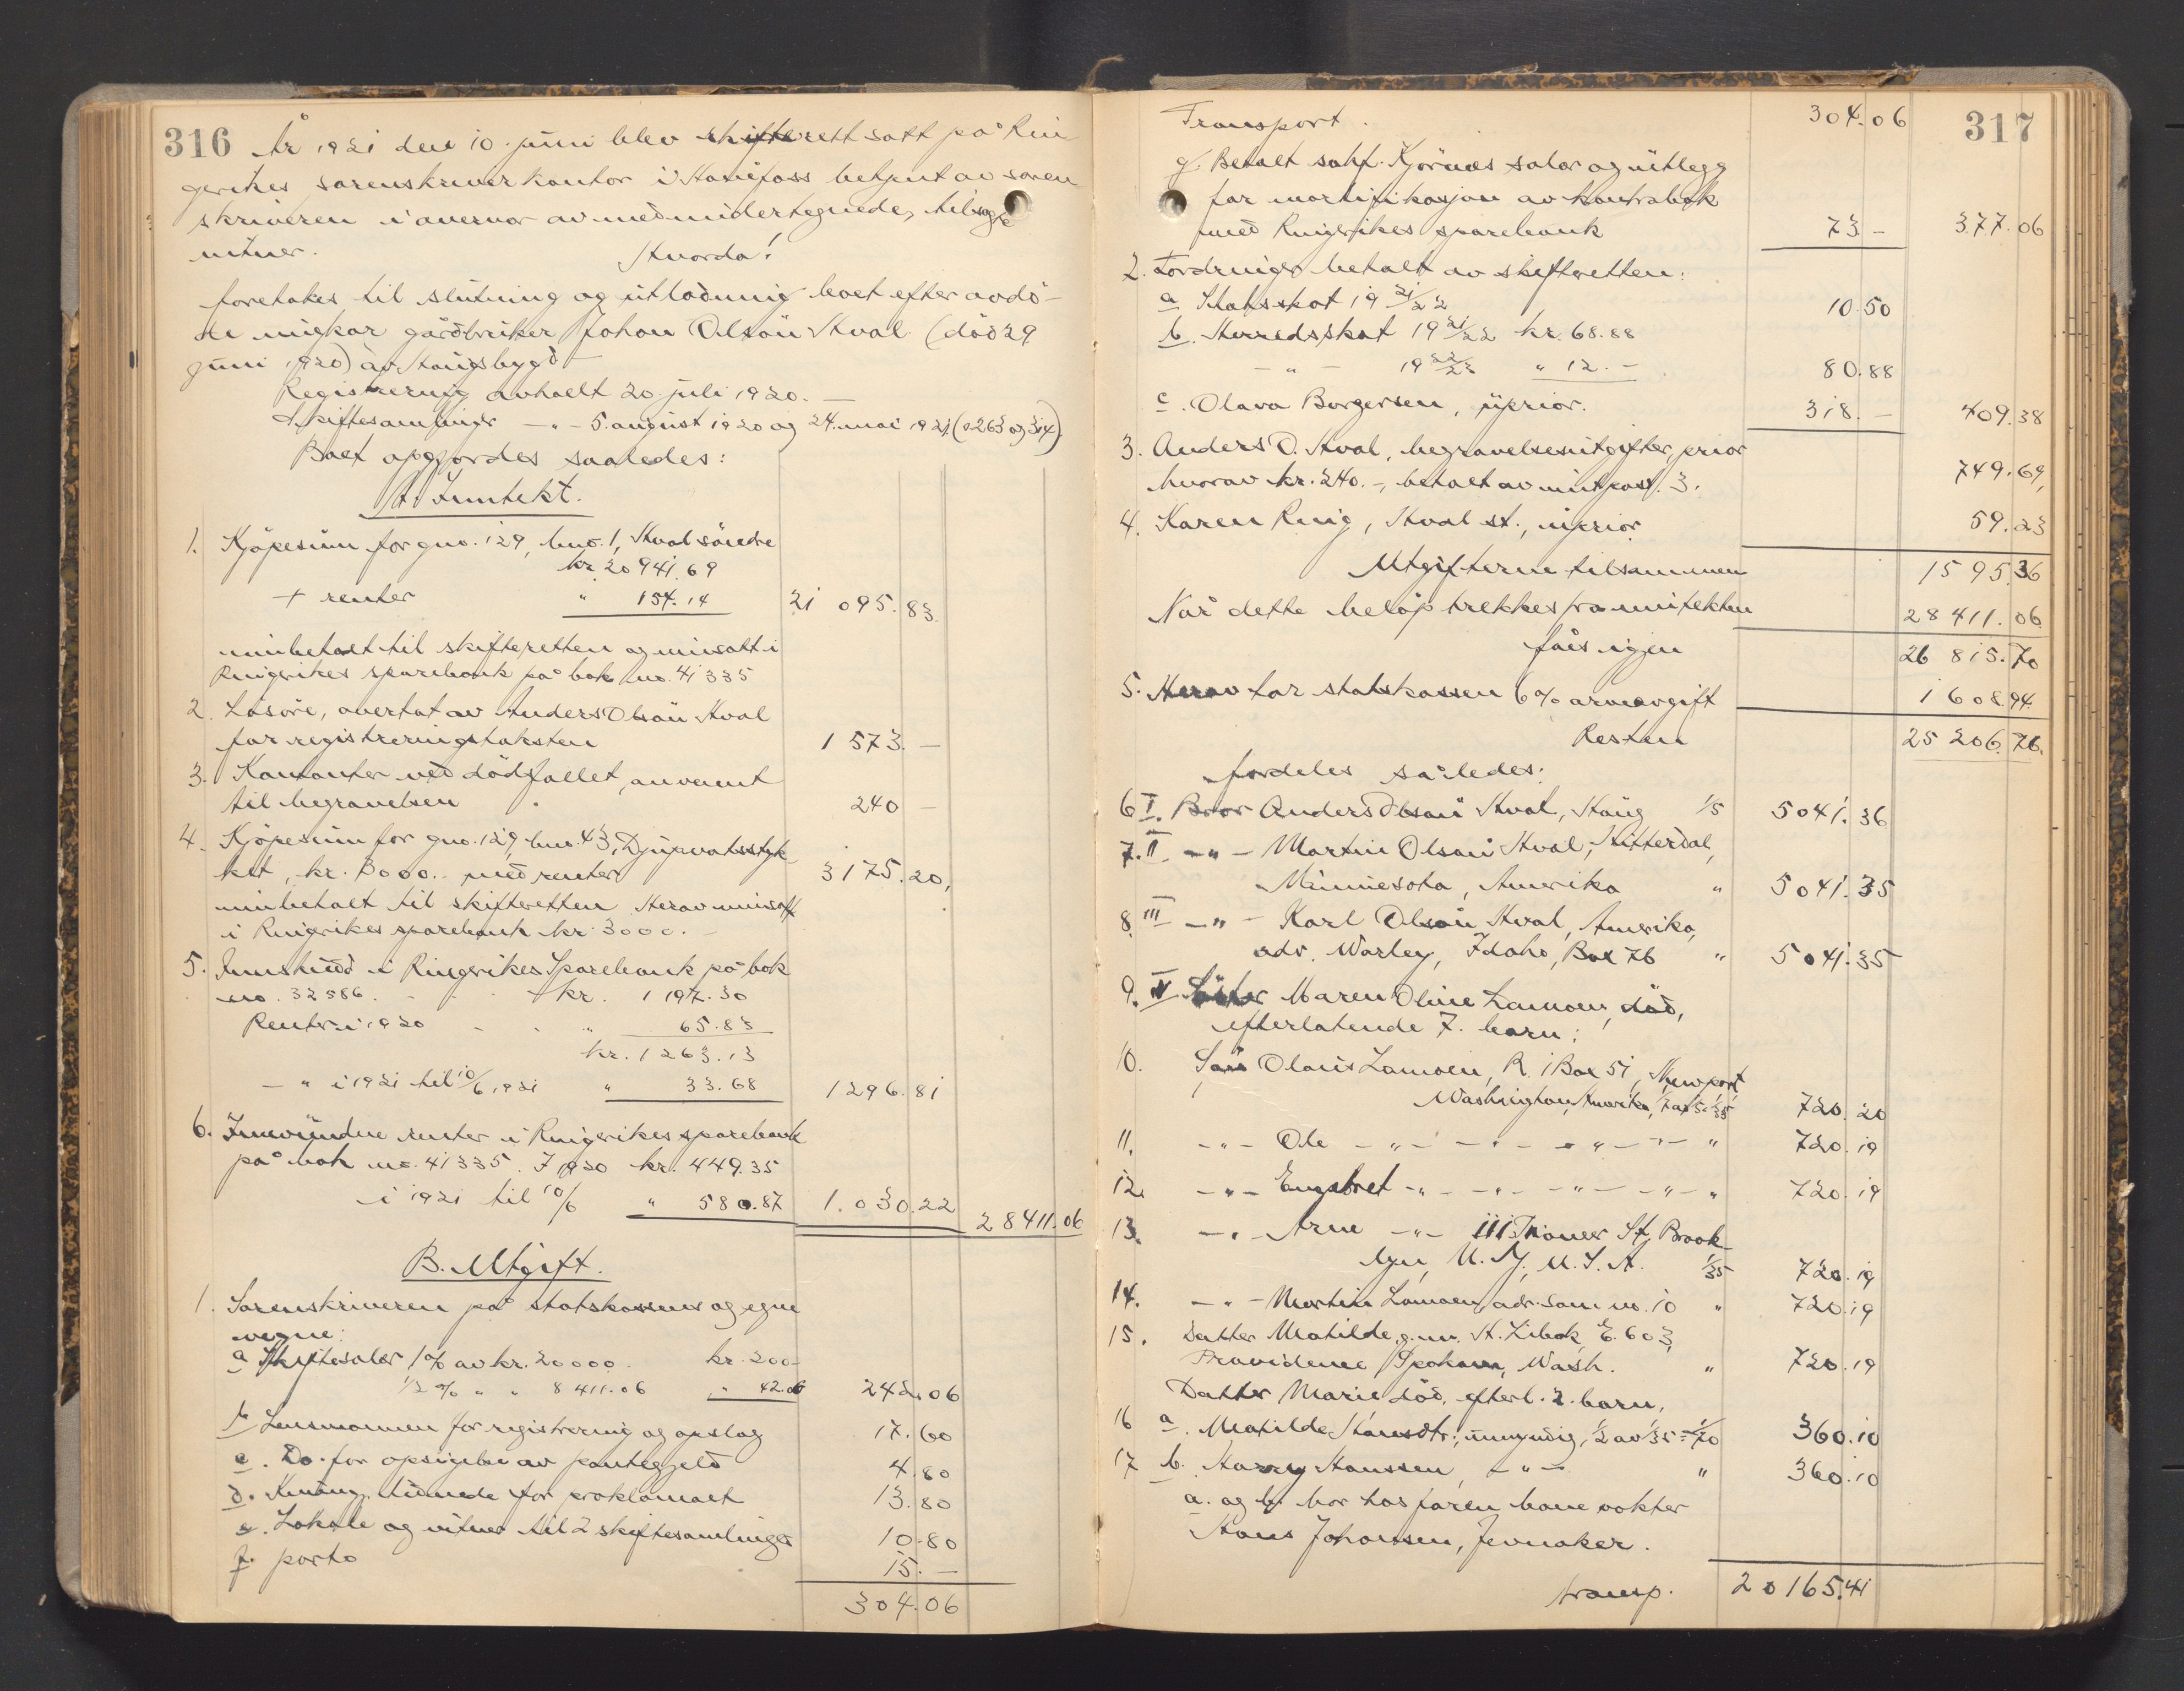 316
År 1921 den 10. juni blev skifterett satt på Rin
gerikes sorenskriverkontor i Hønefoss betjent av soren
skriveren i overvær av medundertegnede, tilsagte
vitner.
Hvorda!
foretakes til slutning og utlodning boet efter avdö-
de ungkar gårdbruker Johan Olsön Hval (död 29
juni 1920) av Haugsbygd
Registrering avholt 20. juli 1920. —
Skiftesamlinger —"— 5. august 1920 og 24. mai 1921 (s. 263 og 314)
Boet opgjordes saaledes:
A. Inntekt.
1. Kjöpesum for gno. 129, bno. 1, Hval söndre
kr. 20 941.69
+ renter " 154.14 21 095.83
innbetalt til skifteretten og innsatt i
Ringerikes sparebank på bok no. 41335
2. Lösöre, overtat av Anders Olsön Hval
for registreringstaksten 1 573.—
3. Kontanter ved dödsfallet, anvent
til begravelsen 240 —
4. Kjöpesum for gno. 129, bno. 43, Djupvatsstyk
ket, kr. 3000.- med renter 3175.20,
innbetalt til skifteretten Herav innsatt
i Ringerikes sparebank kr. 3000.—
5. Innskudd i Ringerikes Sparebank på bok
no. 32586. kr. 1 197.30
Renter i 1920 " 65.83
kr. 1 263.13
—" i 1921 til 10/6 1921 " 33.68 1296.81
6. Innvundne renter i Ringerikes sparebank
på bok no. 41335. I 1920 kr. 449.35
i 1921 til 10/6 " 580.87 1.030.22 28411.06
B. Utgift.
1. Sorenskriveren på statskassens og egne
vegne:
a Skiftesalær 1% av kr. 20000. kr. 200-
1/2 % " " 8 411.06 " 42.06 242.06
b Lensmannen for registrering og opslag 17.60
c. Do. for opsigelse av pantegjeld 4.80
d. Kunng. tidende for proklamaet 13.80
e. Lokale og vitner til 2 skiftesamlinger 10.80
f. porto 15.—
304.06
317
Transport. 304.06
g. Betalt sakf. Kjörnæs salær og utlegg
for mortifikasjon av kontrabok
med Ringerikes sparebank 73 — 377.06
2. Fordringer betalt av skifteretten:
a Statsskat 19 21/22 10.50
b. Herredsskat 19 21/22 kr. 68.88
—"— 19 22/23 " 12.— 80.88
c. Olava Borgersen, uprior. 318.— 409.38
3. Anders O. Hval, begravelsesutgifter, prior
hvorav kr. 240.-, betalt av inntpost. 3. 749.69,
4. Karen Ring, Hval st., uprior 59.23
Utgifterne tilsammen 1595.36
Når dette belöp trekkes fra inntekten 28411.06
fåes igjen 26 815.70
5. Herav tar statskassen 6% arveavgift 1 608.94
Resten 25 206.76.
fordeles således:
6 I. Bror Anders Olsön Hval, Haug 1/5 5041.36
7. II —"— Martin Olson Hval, Hitterdal,
Minnesota, Amerika " 5041.35
8. III —"— Karl Olsön Hval, Amerika,
adr. Worley, Idaho, Box 76 " 5041.35
9. IV Söster Maren Oline Lamoen, död,
efterlatende 7. barn:
10. Sön Olaus Lamoen, R. 1 Box 51, Newport
Washington, Amerika, 1/7 av 1/5 = 1/35 720.20
11. —"— Ole —"— —"— —"— —"— " 720.19
12. —"— Engebret —"— —"— —"— —"— " 720.19
13. —"— Arne —"— 111 Troner St, Brook-
lyn, N. Y., U. S. A. 1/35 720.19
14. —"— Martin Lamoen, adr. som no. 10 " 720.19
15. Datter Matilde, g. m. A. Libak, E. 603,
Providence, Spokane, Wash. " 720.19
Datter Marie död, efterl. 2. barn,
16 a. Matilde Hansdtr., umyndig, 1/2 av 1/35 = 1/70 360.10
17 b. Harry Hanssen —"— " 360.10
a. og b. bor hos faren banevokter
Hans Johanssen, Jevnaker.
transp. 20165.41